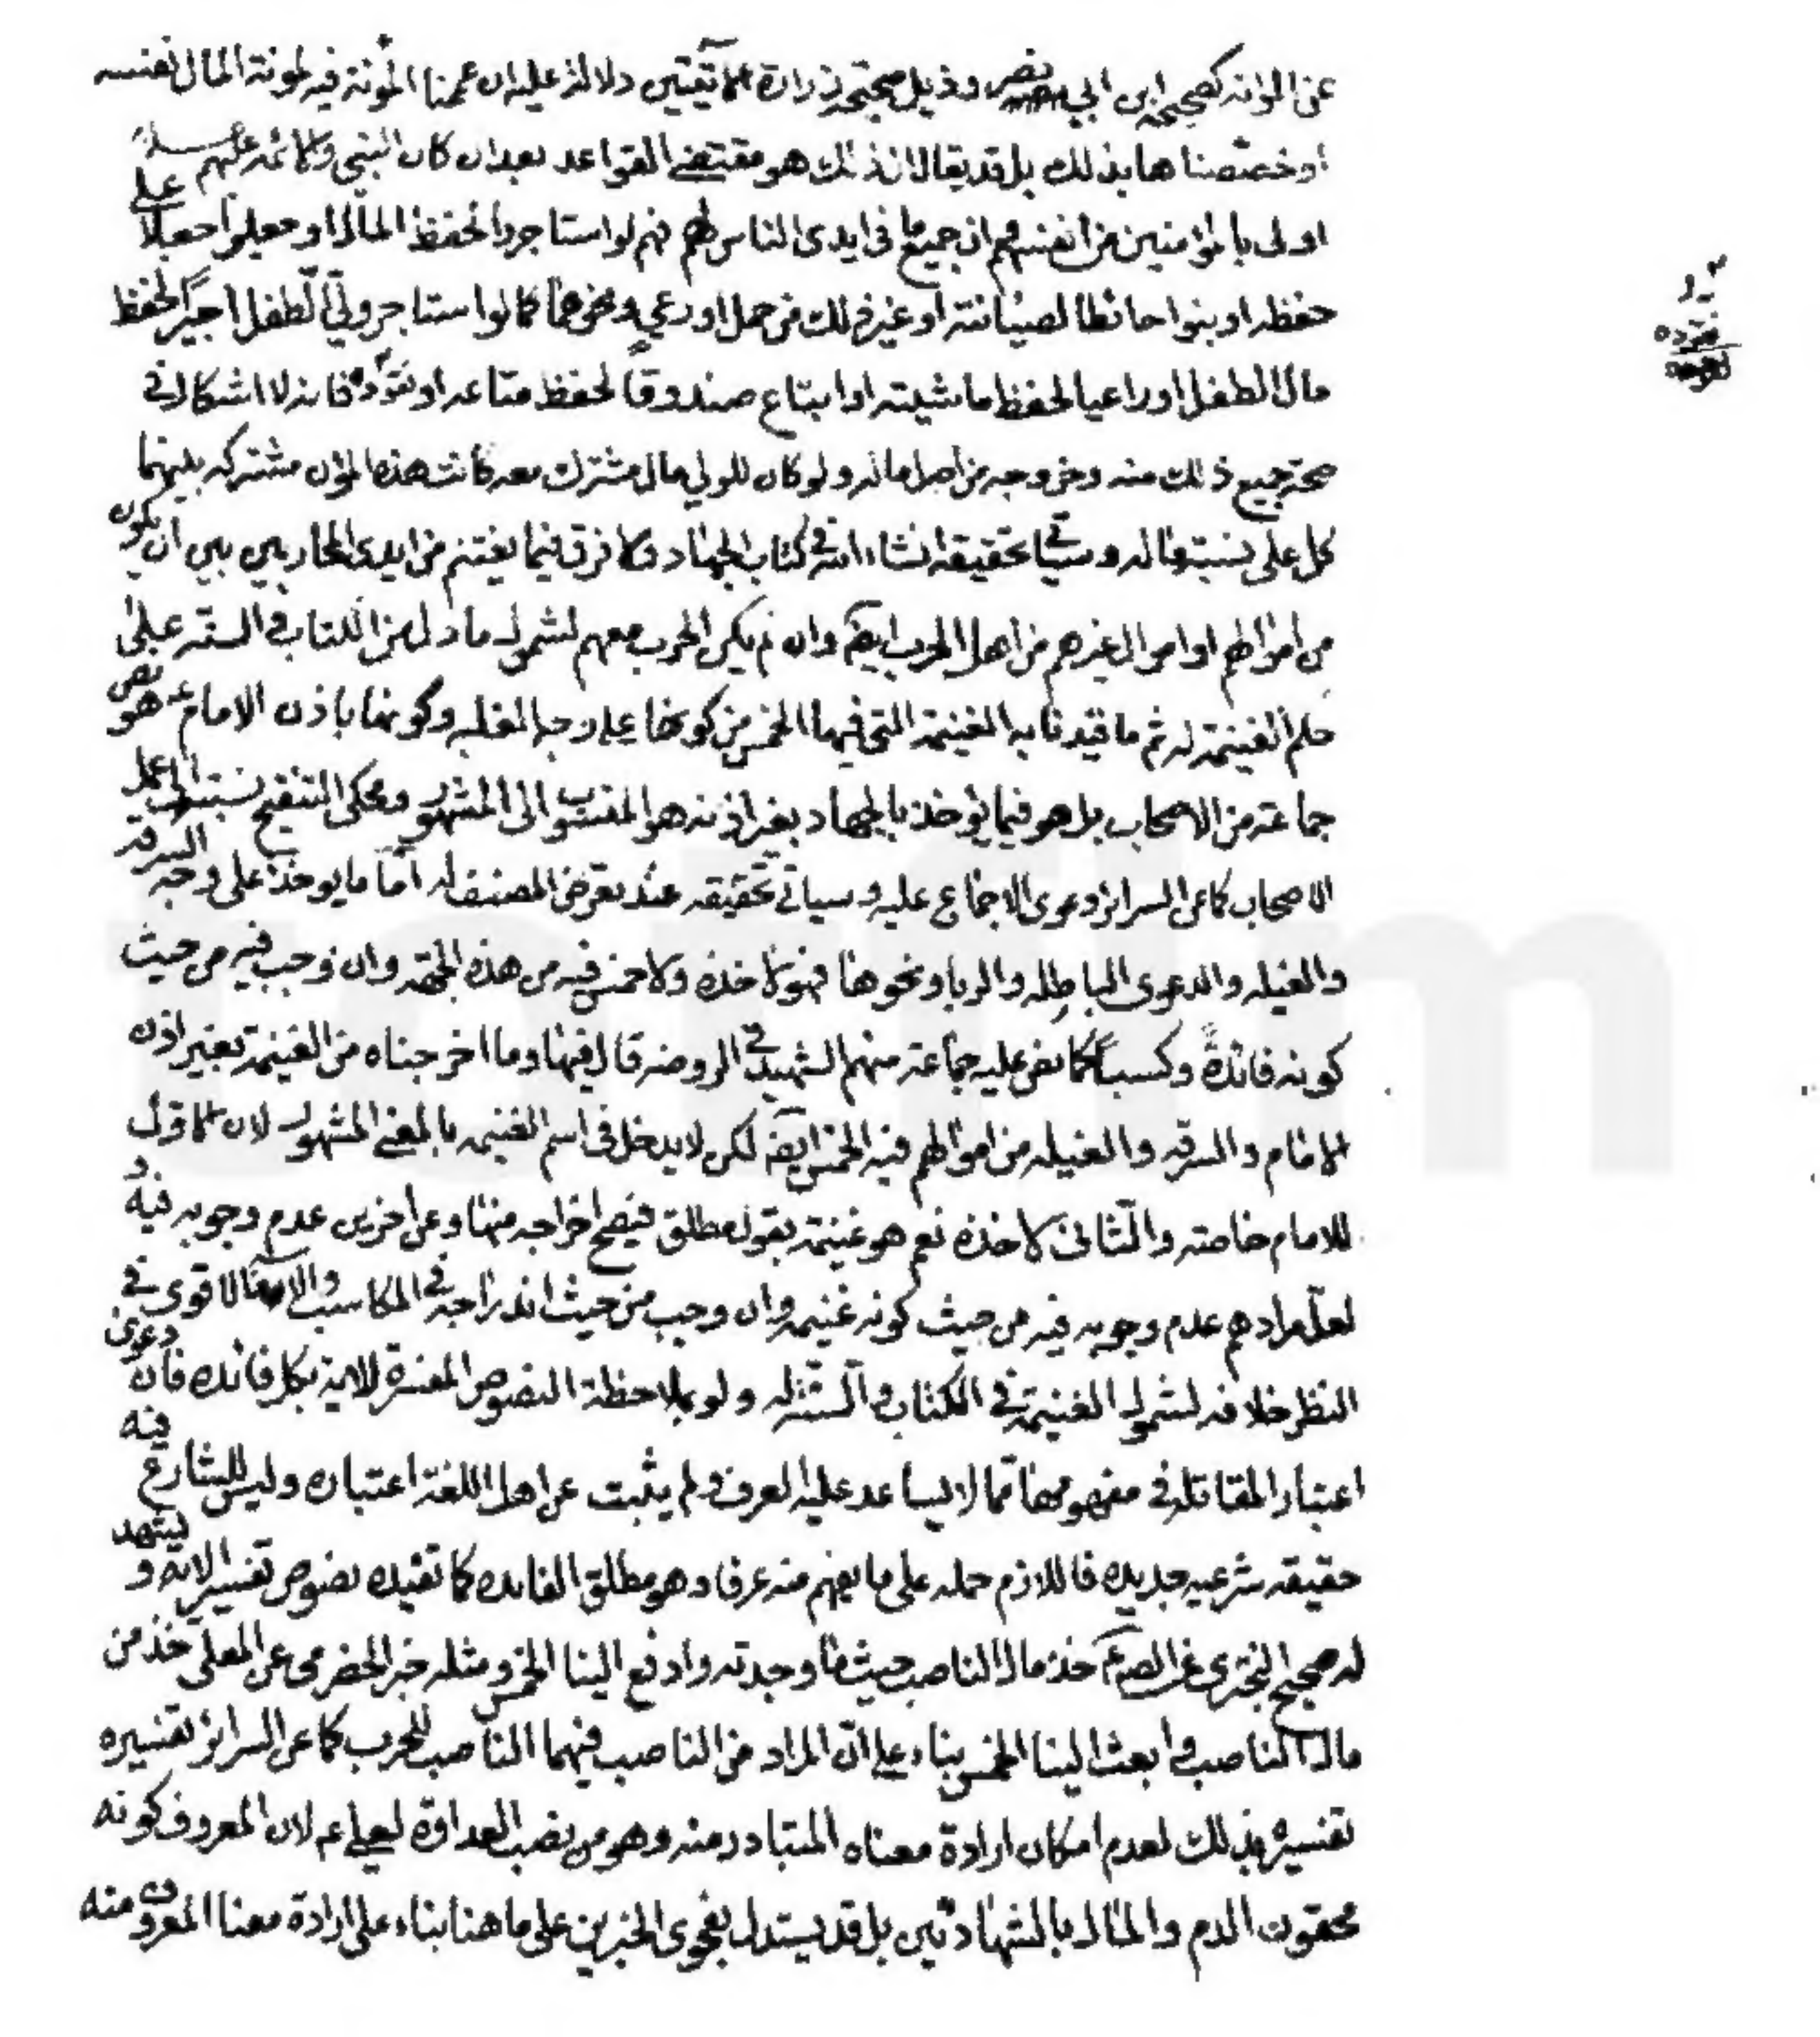 عن المؤنة كصحيح ابن ابي نصر وذيل صحيحة زرارة الآتيتين دلالة عليه ان عممنا المؤنة فيه لمؤنة المال نفسه
او خصصناها بذلك بل قد يقال ان ذلك هو مقتضى القواعد بعد ان كان النبي والائمة عليهم
اولى بالمؤمنين من انفسهم وان جميع ما في ايدى الناس لهم فهم لو استاجروا لحفظ المال او جعلوا جعلا على
حفظه او بنوا حائطا لصيانته او غير ذلك من حمل او رعي ونحوهما كما لو استاجر ولي الطفل اجيرا لحفظ
مال الطفل او راعيا لحفظ ماشيته او ابتاع صندوقا لحفظ متاعه او نقوده فانه لا اشكال في
صحة جميع ذلك منه وخروجه من اصل ماله ولو كان للولي مال مشترك معه كانت هذه المؤن مشتركه بينهما
كل على نسبة ماله وسياتي تحقيقه انشاء الله في كتاب الجهاد ولا فرق فيما يغتنم من ايدى المحاربين بين ان يكون
من اموالهم او اموال غيرهم من اهل الحرب ايضا وان لم يكن الحرب معهم لشمول ما دل من الكتاب والسنة على
حل الغنيمة له ثم ما قيدنا به الغنيمة التي فيها الخمس من كونها على وجه الغلبه وكونها باذن الامام ع هو نص
جماعة من الاصحاب بل هو فيما يؤخذ بالجهاد بغير اذنه هو المنسوب الى المشهور ومحكى التنقيح نسبته الى عمل
الاصحاب كما عن السرائر دعوى الاجماع عليه وسياتي تحقيقه عند تعرض المصنف له اما ما يوخذ على وجه السرقة
والغيله والدعوى الباطله والربا ونحوها فهو لآخذه ولا خمس فيه من هذه الجهة وان وجب فيه من حيث
كونه فائدة وكسبا كما نص عليه جماعة منهم الشهيد في الروضه قال فيها وما اخرجناه من الغنيمة بغير اذن
الامام والسرقه والغيله من اموالهم فيه الخمس ايضا لكن لا يدخل في اسم الغنيمه بالمعنى المشهور لان الاول
للامام خاصته والثاني لآخذه نعم هو غنيمة بقول مطلق فيصح اخراجه منها وعن اخرين عدم وجوبه فيه و
لعل مرادهم عدم وجوبه فيه من حيث كونه غنيمه وان وجب من حيث اندراجه في المكاسب والا فالاقوى في
النظر خلافه لشمول الغنيمة في الكتاب والسنة له ولو بملاحظة النصوص المفسرة للاية بكل فائده فان دعوى
اعتبار المقاتلة في مفهومها مما لا يساعد عليه العرف ولم يثبت عن اهل اللغة اعتباره وليس للشارع فيه
حقيقه شرعيه جديده فاللازم حمله على ما يفهم منه عرفا وهو مطلق الفايده كما تفيده نصوص تفسير الاية ويشهد
له صحيح البختري عن الصم خذ مال الناصب حيث ما وجدته وادفع الينا الخمس ومثله خبر الحضرمي عن المعلى خذ من
مال الناصب وابعث الينا الخمس بناء على ان المراد من الناصب فيهما الناصب للحرب كما عن السرائر تفسيره
تفسيره بذلك لعدم امكان ارادة معناه المتبادر منه وهو من نصب العداوة لعلي ع لان المعروف كونه
محقون الدم والمال بالشهادتين بل قد يستدل بفحوى الخبرين على ما هنا بناء على ارادة معنا المعروف منه
نقوده